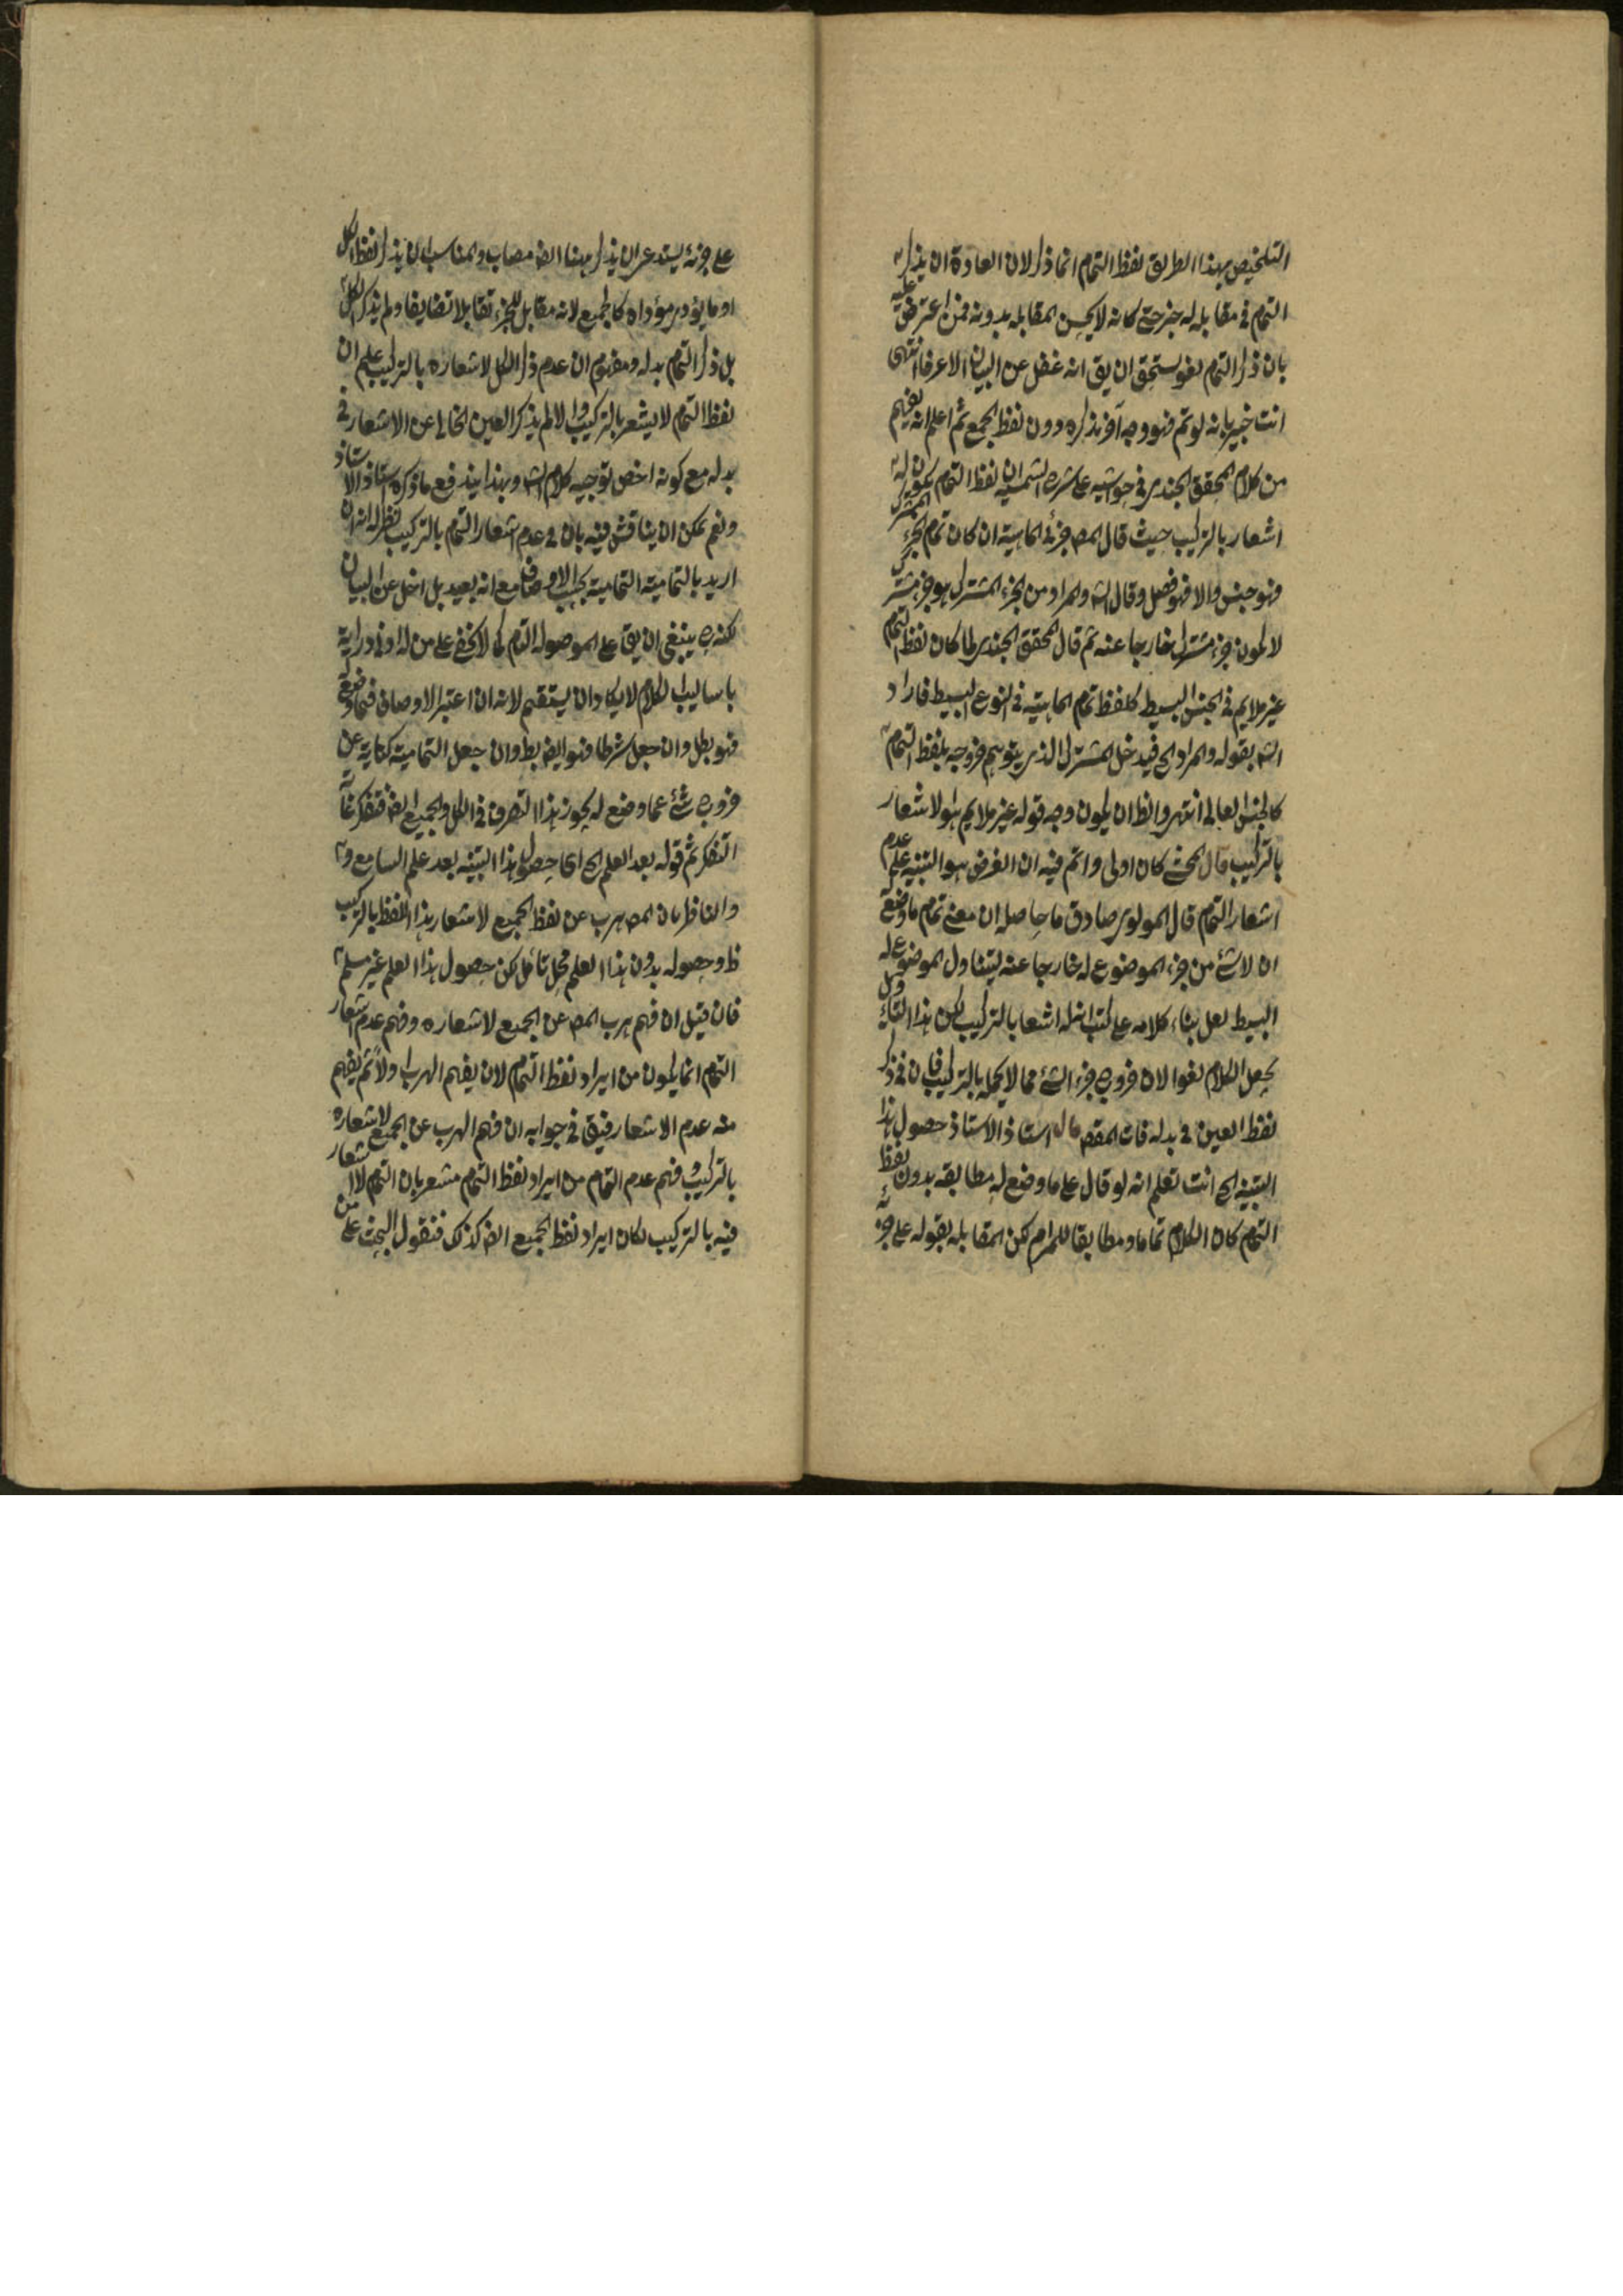 التلخيص بهذا الطريق لفظ التمام انما ذكر لان العادة ان يذكر
التمام في مقابله له جزء حتى كانه لا يحسن المقابله بدونه فمن اعترض عليه
بان ذكر التمام لغو يستحق ان يق انه غفل عن البيان الاعرفا انتهى
انت خبير بانه لو تم فهو وجه آخر لذكره دون لفظ الجميع ثم اعلم انه يفهم
من كلام المحقق الجندى فى حواشيه على شرح الشمسيه ان لفظ التمام يكون له
اشعار بالتركيب حيث قال المص جزئ الماهية ان كان تمام الجزء المشترك
فهو جنس والا فهو فصل وقال الش والمراد من الجزء المشترك هو جزء مشترك
لا يكون جزء مشترك خارجا عنه ثم قال المحقق الجندى لما كان لفظ التمام
غير ملايم فى الجنس البسيط كلفظ تمام الماهية فى النوع البسيط فاراد
الش بقوله والمراد الخ فيدخل المشترك الذى يتوهم خروجه بلفظ التمام
كالجنس العالى انتهى والظ ان يكون وجه قوله غير ملايم هو الاشعار
بالتركيب قال المحشى كان اولى واتم فيه ان الغرض هو التنبيه على عدم
اشعار التمام قال المولوى صادق ما حاصله ان معنى تمام ما وضع له
ان لا شئ من جزء الموضوع له خارجا عنه ليتناول الموضوع له
البسيط لعل بناء كلامه على كتب ان له اشعا بالتركيب لكن هذا التاويل
يجعل الكلام لغوا لان خروج جزء الشئ مما لا يحمله بالتركيب فان فى ذكر
لفظ العين فى بدله فات المقص قال استاذ الاستاذ حصول هذا
التنبيه الخ انت تعلم انه لو قال على ما وضع له مطابقه بدون لفظ
التمام كان الكلام تماما ومطابقا للمرام لكن المقابله بقوله على جزئه
على جزئه يستدعى ان يذكر ههنا ايض مصاب والمناسب ان يذكر لفظ الكل
او ما يؤدى مؤداه كالجميع لانه مقابل للجزء تقابلا تضايفا ولم يذكر الكل
بل ذكر التمام بدله ومفهوم ان عدم ذكر الكل لاشعاره بالتركيب علم ان
لفظ التمام لا يشعر بالتركيب والا لم يذكر العين الخالى عن الاشعار فى
بدله مع كونه اخص توجيه كلام الش وبهذا يندفع ما ذكره استاذ الاستاذ
ونعم يمكن ان يناقش فيه بان فى عدم اشعار التمام بالتركيب نظر له انه ان
اريد بالتمامية التمامية بحسب الاوصاف مع انه بعيد بل اخل عن البيان
لكنه ح ينبغى ان يق على الموصوله التام كما لا يخفى على من له ادنى دراية
باساليب الكلام لا يكاد ان يستقيم لانه ان اعتبر الاوصاف فيما وضع
فهو بطل وان جعل شرطا فهو ايض بط وان جعل التمامية كناية عن
خروج شئ عما وضع له يجوز هذا التصرف فى الكل والجميع ايض فتفكر غاية
التفكر ثم قوله بعد العلم الخ اى حصول هذا التنبيه بعد علم السامع
والناظر بان المص هرب عن لفظ الجميع لاشعار هذا اللفظ بالتركيب
ظ وحصوله بدون هذا العلم محل تامل لكن حصول هذا العلم غير مسلم
فان قيل ان فهم هرب المص عن الجميع لاشعاره وفهم عدم اشعار
التمام انما يكون من ايراد لفظ التمام لان يفهم الهرب اولا ثم يفهم
منه عدم الاشعار فيق فى جوابه ان فهم الهرب عن الجميع لاشعاره
بالتركيب وفهم عدم التمام من ايراد لفظ التمام مشعر بان التمام لا اشعار
فيه بالتركيب لكان ايراد لفظ الجميع ايض كذلك فنقول البحث على من